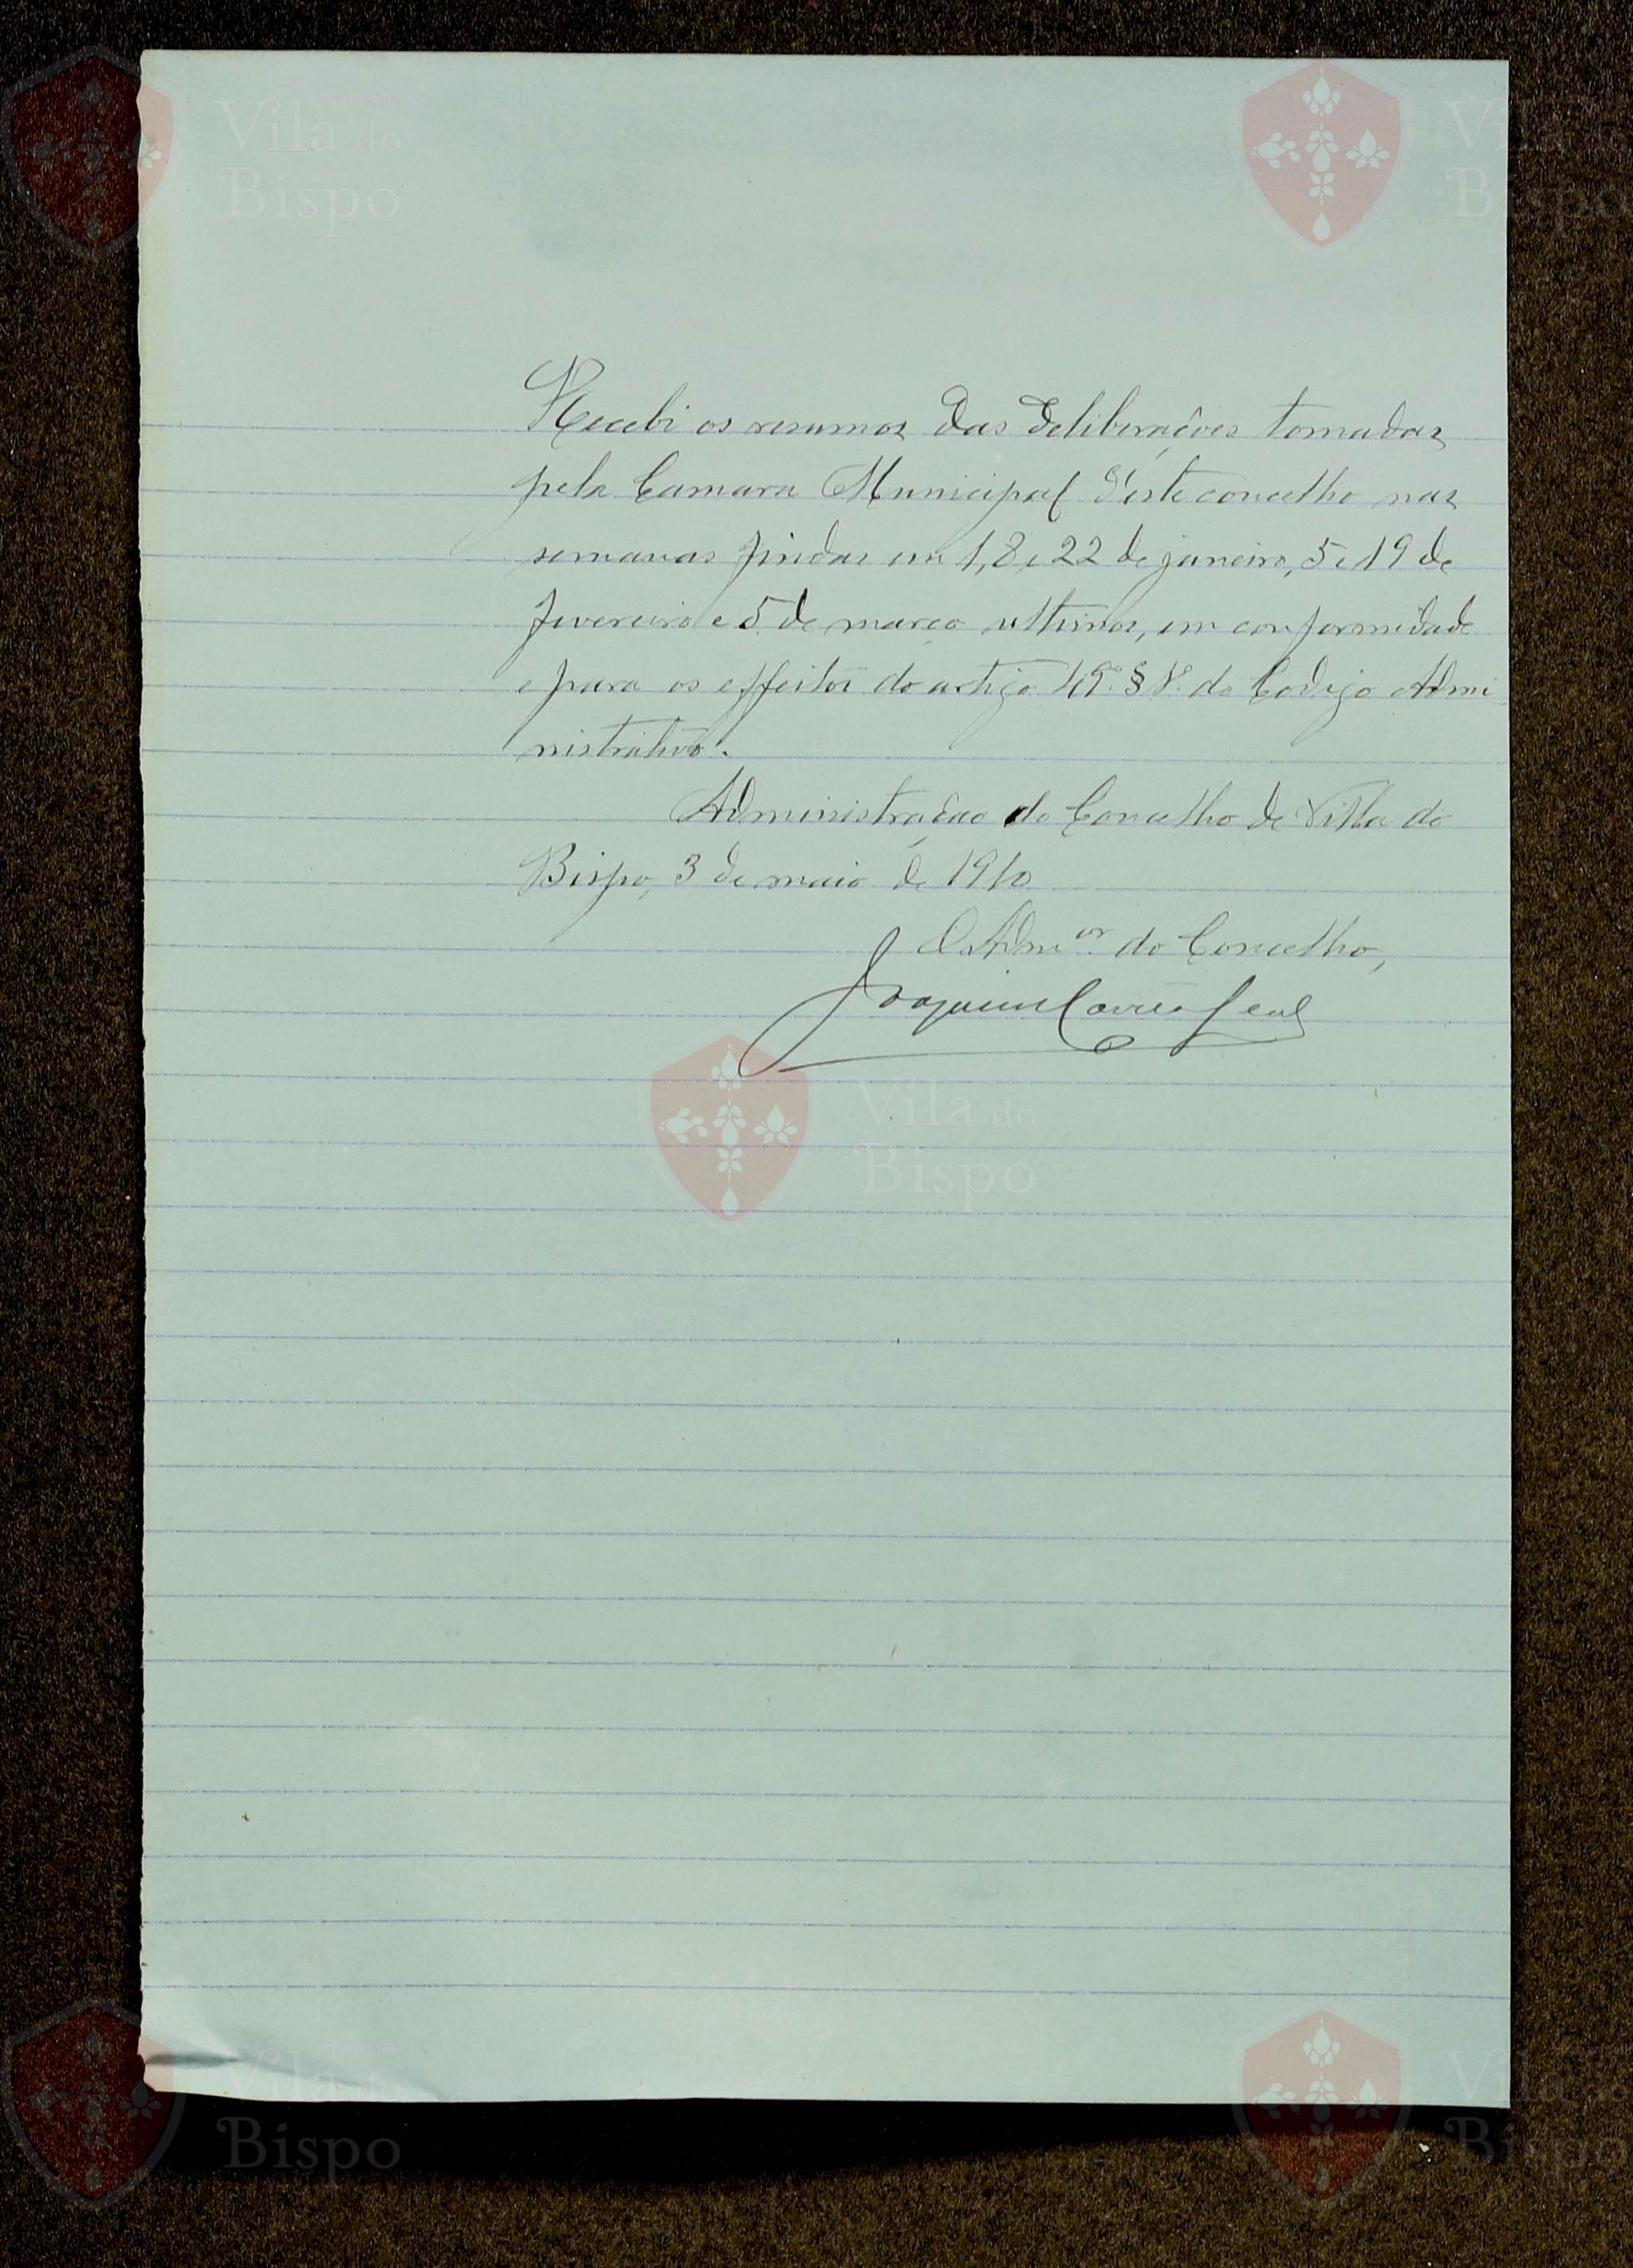 Vila do
Bispo
Vila do
Bispo
Recebi os resumos das deliberações tomadas
pela Camara Municipal d'este concelho nas
semanas findas em 1, 8 e 22 de janeiro, 5 e 19 de
fevereiro e 5 de março ultimos, em conformidade
e para os effeitos do artigo do Codigo Admi
nistrativo.
Administração do Concelho de Villa do
Bispo, 3 de maio de 1910
O Adm.or do Concelho,
Joaquim Leal
Vila do
Bispo
Vila do
Bispo
Vila do
Bispo